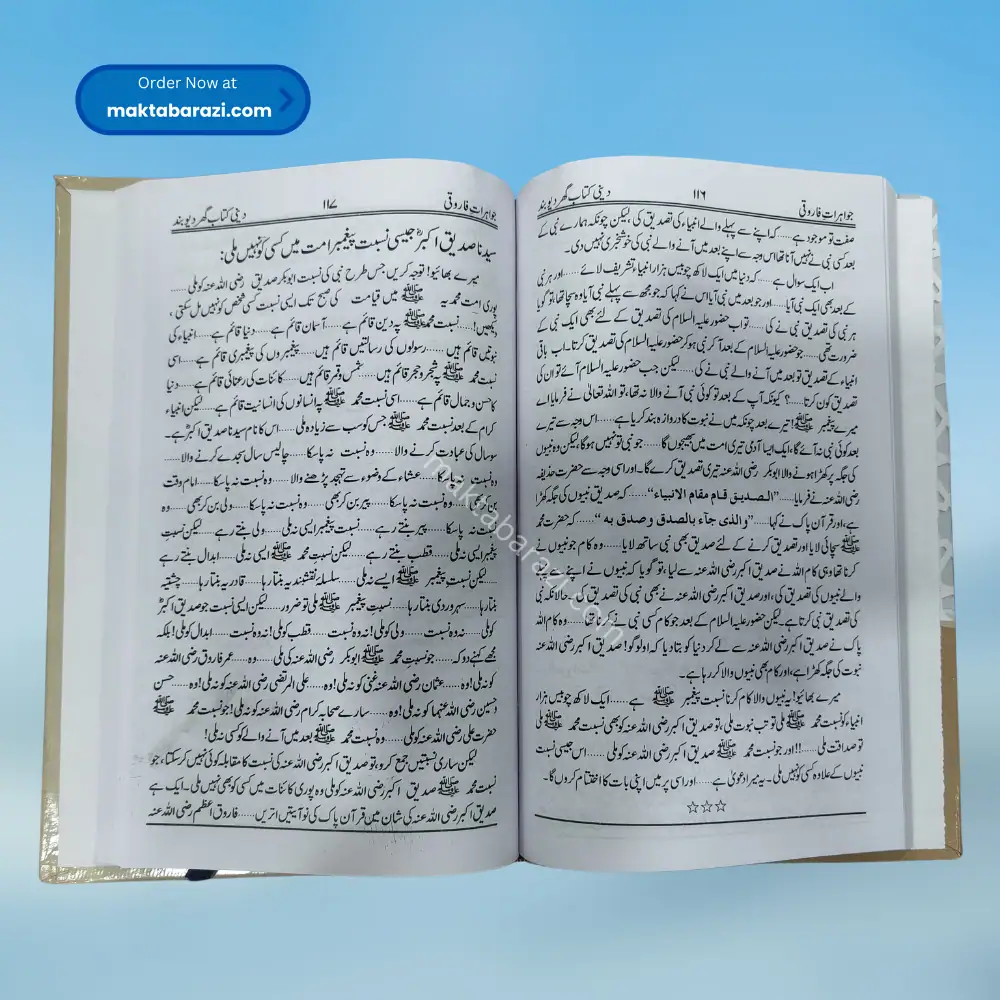 Order Now at
maktabarazi.com
جواہراتِ فاروقی ۱۱۶ دینی کتاب گھر دیوبند
صفت تو موجود ہے......کہ اپنے سے پہلے والے انبیاء کی تصدیق کی، لیکن چونکہ ہمارے نبی کے
بعد کسی نبی نے نہیں آنا تھا اس وجہ سے اپنے بعد میں آنے والے نبی کی خوشخبری نہیں دی۔
اب ایک سوال ہے......کہ دنیا میں ایک لاکھ چوبیس ہزار انبیاء تشریف لائے......اور ہر نبی
کے بعد بھی ایک نبی آیا......اور جو بعد میں نبی آیا اس نے کہا کہ جو مجھ سے پہلے نبی آیا وہ سچا تھا، تو گویا
ہر نبی کی تصدیق نبی نے کی......تو اب حضور علیہ السلام کی تصدیق کے لئے بھی ایک نبی کے
ضرورت تھی......جو حضور علیہ السلام کے بعد آ کر نبی ہو کر حضور علیہ السلام کی تصدیق کرتا۔ اب باقی
انبیاء کے تصدیق تو بعد میں آنے والے نبی نے کی......لیکن جب حضور علیہ السلام آئے تو ان کی
تصدیق کون کرتا......؟ کیونکہ آپ کے بعد تو کوئی نبی آنے والا نہ تھا، تو اللہ تعالیٰ نے فرمایا اے
میرے پیغمبر ﷺ! تیرے بعد چونکہ میں نے نبوت کا دروازہ بند کر دیا ہے......اس وجہ سے تیرے
بعد کوئی نبی نہ آئے گا، ایک ایسا آدمی تیری امت میں بھیجوں گا......جو نبی تو نہیں ہو گا، لیکن وہ نبیوں
کی جگہ پر کھڑا ہونے والا ابوبکر رضی اللہ عنہ تیری تصدیق کرے گا۔ اور اسی وجہ سے حضرت حذیفہ
رضی اللہ عنہ نے فرمایا......”الصدیق قام مقام الانبیاء“......کہ صدیق نبیوں کی جگہ کھڑا
ہے، اور قرآن پاک نے کہا......”والذی جآء بالصدق وصدق بہ“......کہ حضرت محمد
ﷺ سچائی لایا اور تصدیق کرنے کے لئے صدیق بھی نبی ساتھ لایا......وہ کام جو نبیوں نے
کرنا تھا وہی کام اللہ نے صدیق اکبر رضی اللہ عنہ سے لیا، تو گویا کہ نبیوں نے اپنے سے پہلے
والے نبیوں کی تصدیق کی، اور صدیق اکبر رضی اللہ عنہ نے بھی نبی کی تصدیق کی۔ حالانکہ نبی
کی تصدیق نبی کرتا ہے۔ لیکن حضور علیہ السلام کے بعد جو کام کسی نبی نے کرنا تھا......وہ کام اللہ
پاک نے صدیق اکبر رضی اللہ عنہ سے لے کر دنیا کو بتا دیا کہ او لوگو! صدیق اکبر رضی اللہ عنہ
نبوت کی جگہ کھڑا ہے، اور کام بھی نبیوں والا کر رہا ہے۔
میرے بھائیو! یہ نبیوں والا کام کرنا نسبت پیغمبر ﷺ ہے......ایک لاکھ چوبیس ہزار
انبیاء کو نسبت محمد ﷺ ملی تو تب نبوت ملی، تو صدیق اکبر رضی اللہ عنہ کو بھی نسبت محمد ﷺ ملی
تو صداقت ملی......!! اور جو نسبت محمد ﷺ صدیق اکبر رضی اللہ عنہ کو ملی......اس جیسی نسبت
نبیوں کے علاوہ کسی کو نہیں ملی۔ یہ میرا دعویٰ ہے......اور اسی پر میں اپنی بات کا اختتام کروں گا۔
☆☆☆
جواہراتِ فاروقی ۱۱۷ دینی کتاب گھر دیوبند
سیدنا صدیق اکبرؓ جیسی نسبت پیغمبر امت میں کسی کو نہیں ملی:
میرے بھائیو! توجہ کریں جس طرح نبی کی نسبت ابوبکر صدیق رضی اللہ عنہ کو ملی......
پوری امت محمدیہ ﷺ میں قیامت کی صبح تک ایسی نسبت کسی شخص کو نہیں مل سکتی،
دیکھیں! ...... نسبت محمد ﷺ پہ دین قائم ہے......آسمان قائم ہے......دنیا قائم ہے......انبیاء کی
نبوتیں قائم ہیں......رسولوں کی رسالتیں قائم ہیں......پیغمبروں کی پیغمبری قائم ہے......اسی
نسبت محمد ﷺ پہ شجر و حجر قائم ہیں......شمس و قمر قائم ہیں......کائنات کی رعنائی قائم ہے......دنیا
کا حسن و جمال قائم ہے......اسی نسبت محمد ﷺ پہ انسانوں کی انسانیت قائم ہے......لیکن انبیاء
کرام کے بعد نسبت محمد ﷺ جس کو سب سے زیادہ ملی......اس کا نام سیدنا صدیق اکبرؓ ہے۔
سو سال کی عبادت کرنے والا......وہ نسبت نہ پا سکا......چالیس سال سجدے کرنے والا......
وہ نسبت نہ پا سکا......عشاء کے وضو سے تہجد پڑھنے والا......وہ نسبت نہ پا سکا......امام وقت
بن کر بھی......وہ نسبت نہ پا سکا......پیر بن کر بھی......وہ نسبت نہ پا سکا......ولی بن کر بھی......وہ
نسبت نہ پا سکا......پیر بنتے رہے......نسبت پیغمبر ایسی نہ ملی......ولی بنتے رہے......لیکن نسبت
پیغمبر ایسی نہ ملی......قطب بنتے رہے......لیکن نسبت محمد ﷺ ایسی نہ ملی......ابدال بنتے رہے
......لیکن نسبت پیغمبر ﷺ ایسے نہ ملی......سلسلہ نقشبندیہ بنتا رہا......قادریہ بنتا رہا......چشتیہ
بنتا رہا......سہروردی بنتا رہا......نسبت پیغمبر ﷺ ملی تو ضرور......لیکن ایسی نسبت جو صدیق اکبرؓ
کو ملی......نہ وہ نسبت......ولی کو ملی! نہ وہ نسبت......قطب کو ملی! نہ وہ نسبت......ابدال کو ملی! بلکہ
مجھے کہنے دو کہ......جو نسبت محمد ﷺ ابوبکر رضی اللہ عنہ کی ملی......وہ......عمر فاروق رضی اللہ عنہ
کو نہ ملی! وہ......عثمان رضی اللہ عنہ غنی کو نہ ملی! وہ......علی المرتضی رضی اللہ عنہ کو نہ ملی! وہ......حسن
و حسین رضی اللہ عنہما کو نہ ملی! وہ......سارے صحابہ کرام رضی اللہ عنہ کو نہ ملی! جو نسبت محمد ﷺ
حضرت علی رضی اللہ عنہ کو ملی......وہ نسبت محمد ﷺ بعد میں آنے والے کو کسی نہ ملی!
لیکن ساری نسبتیں جمع کرو، تو صدیق اکبر رضی اللہ عنہ کی نسبت کا مقابلہ کوئی نہیں کر سکتا، جو
نسبت محمد ﷺ صدیق اکبر رضی اللہ عنہ کو ملی وہ پوری کائنات میں کسی کو بھی نہیں ملی۔ ایک ہے
صدیق اکبر رضی اللہ عنہ کی شان میں قرآن پاک کی نو آیتیں اتریں......فاروق اعظم رضی اللہ عنہ
maktabarazi.com